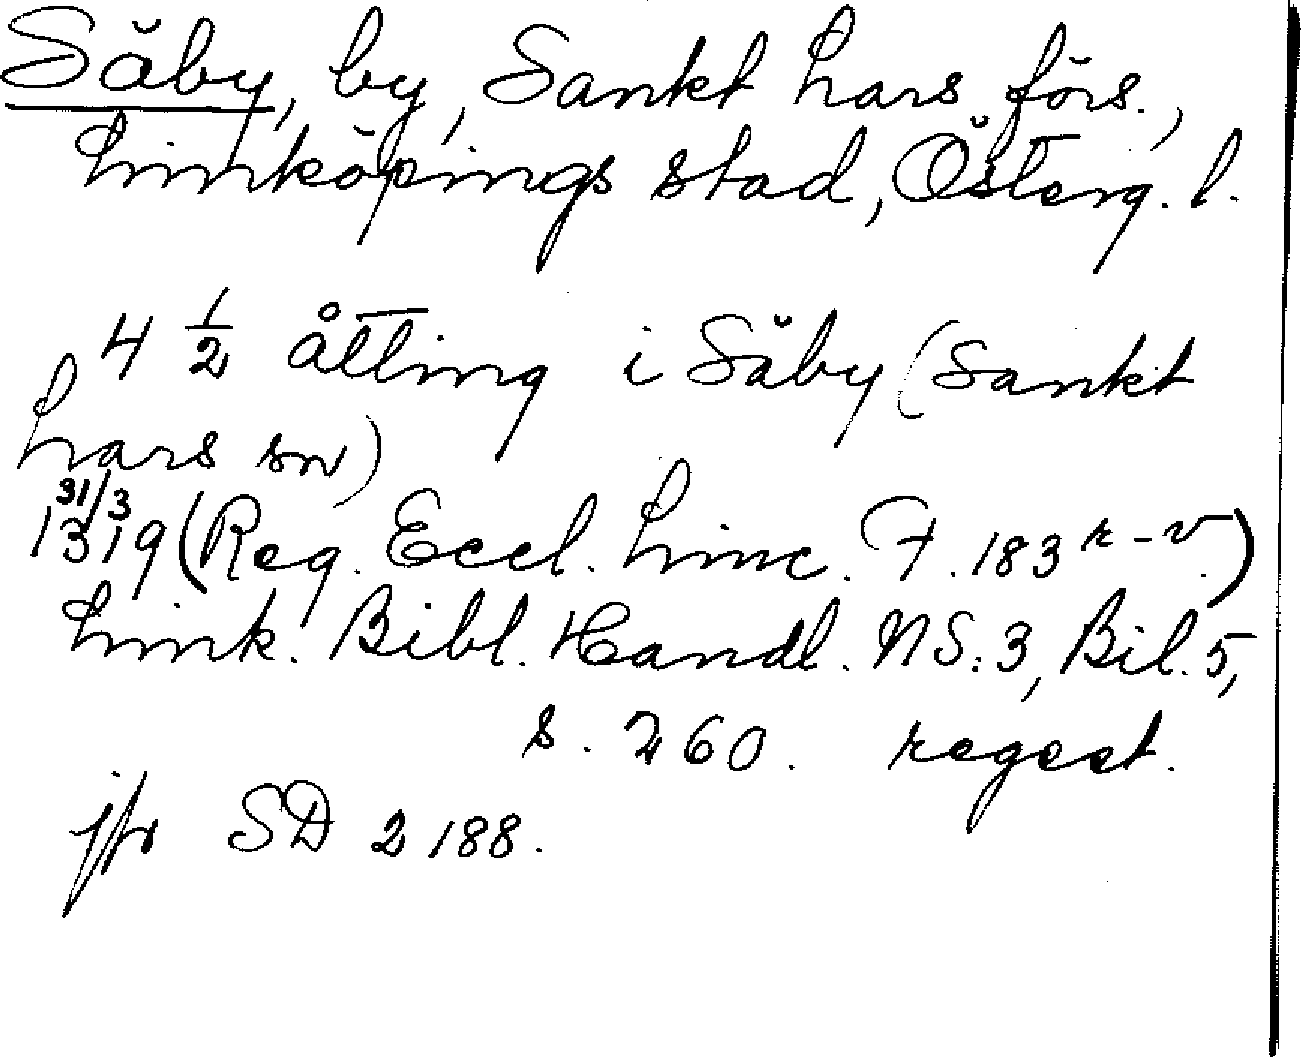 Säby, by, Sankt Lars förs.,
Linköpings stad, Österg. l.
4 1/2 åtting i Säby (Sankt
Lars sn)
31/3
1319 (Reg. Eccl. Linc. F. 183 r-v.)
Link. Bibl. Handl. NS:3, Bil. 5,
s. 260. regest.
jfr SD 2188.